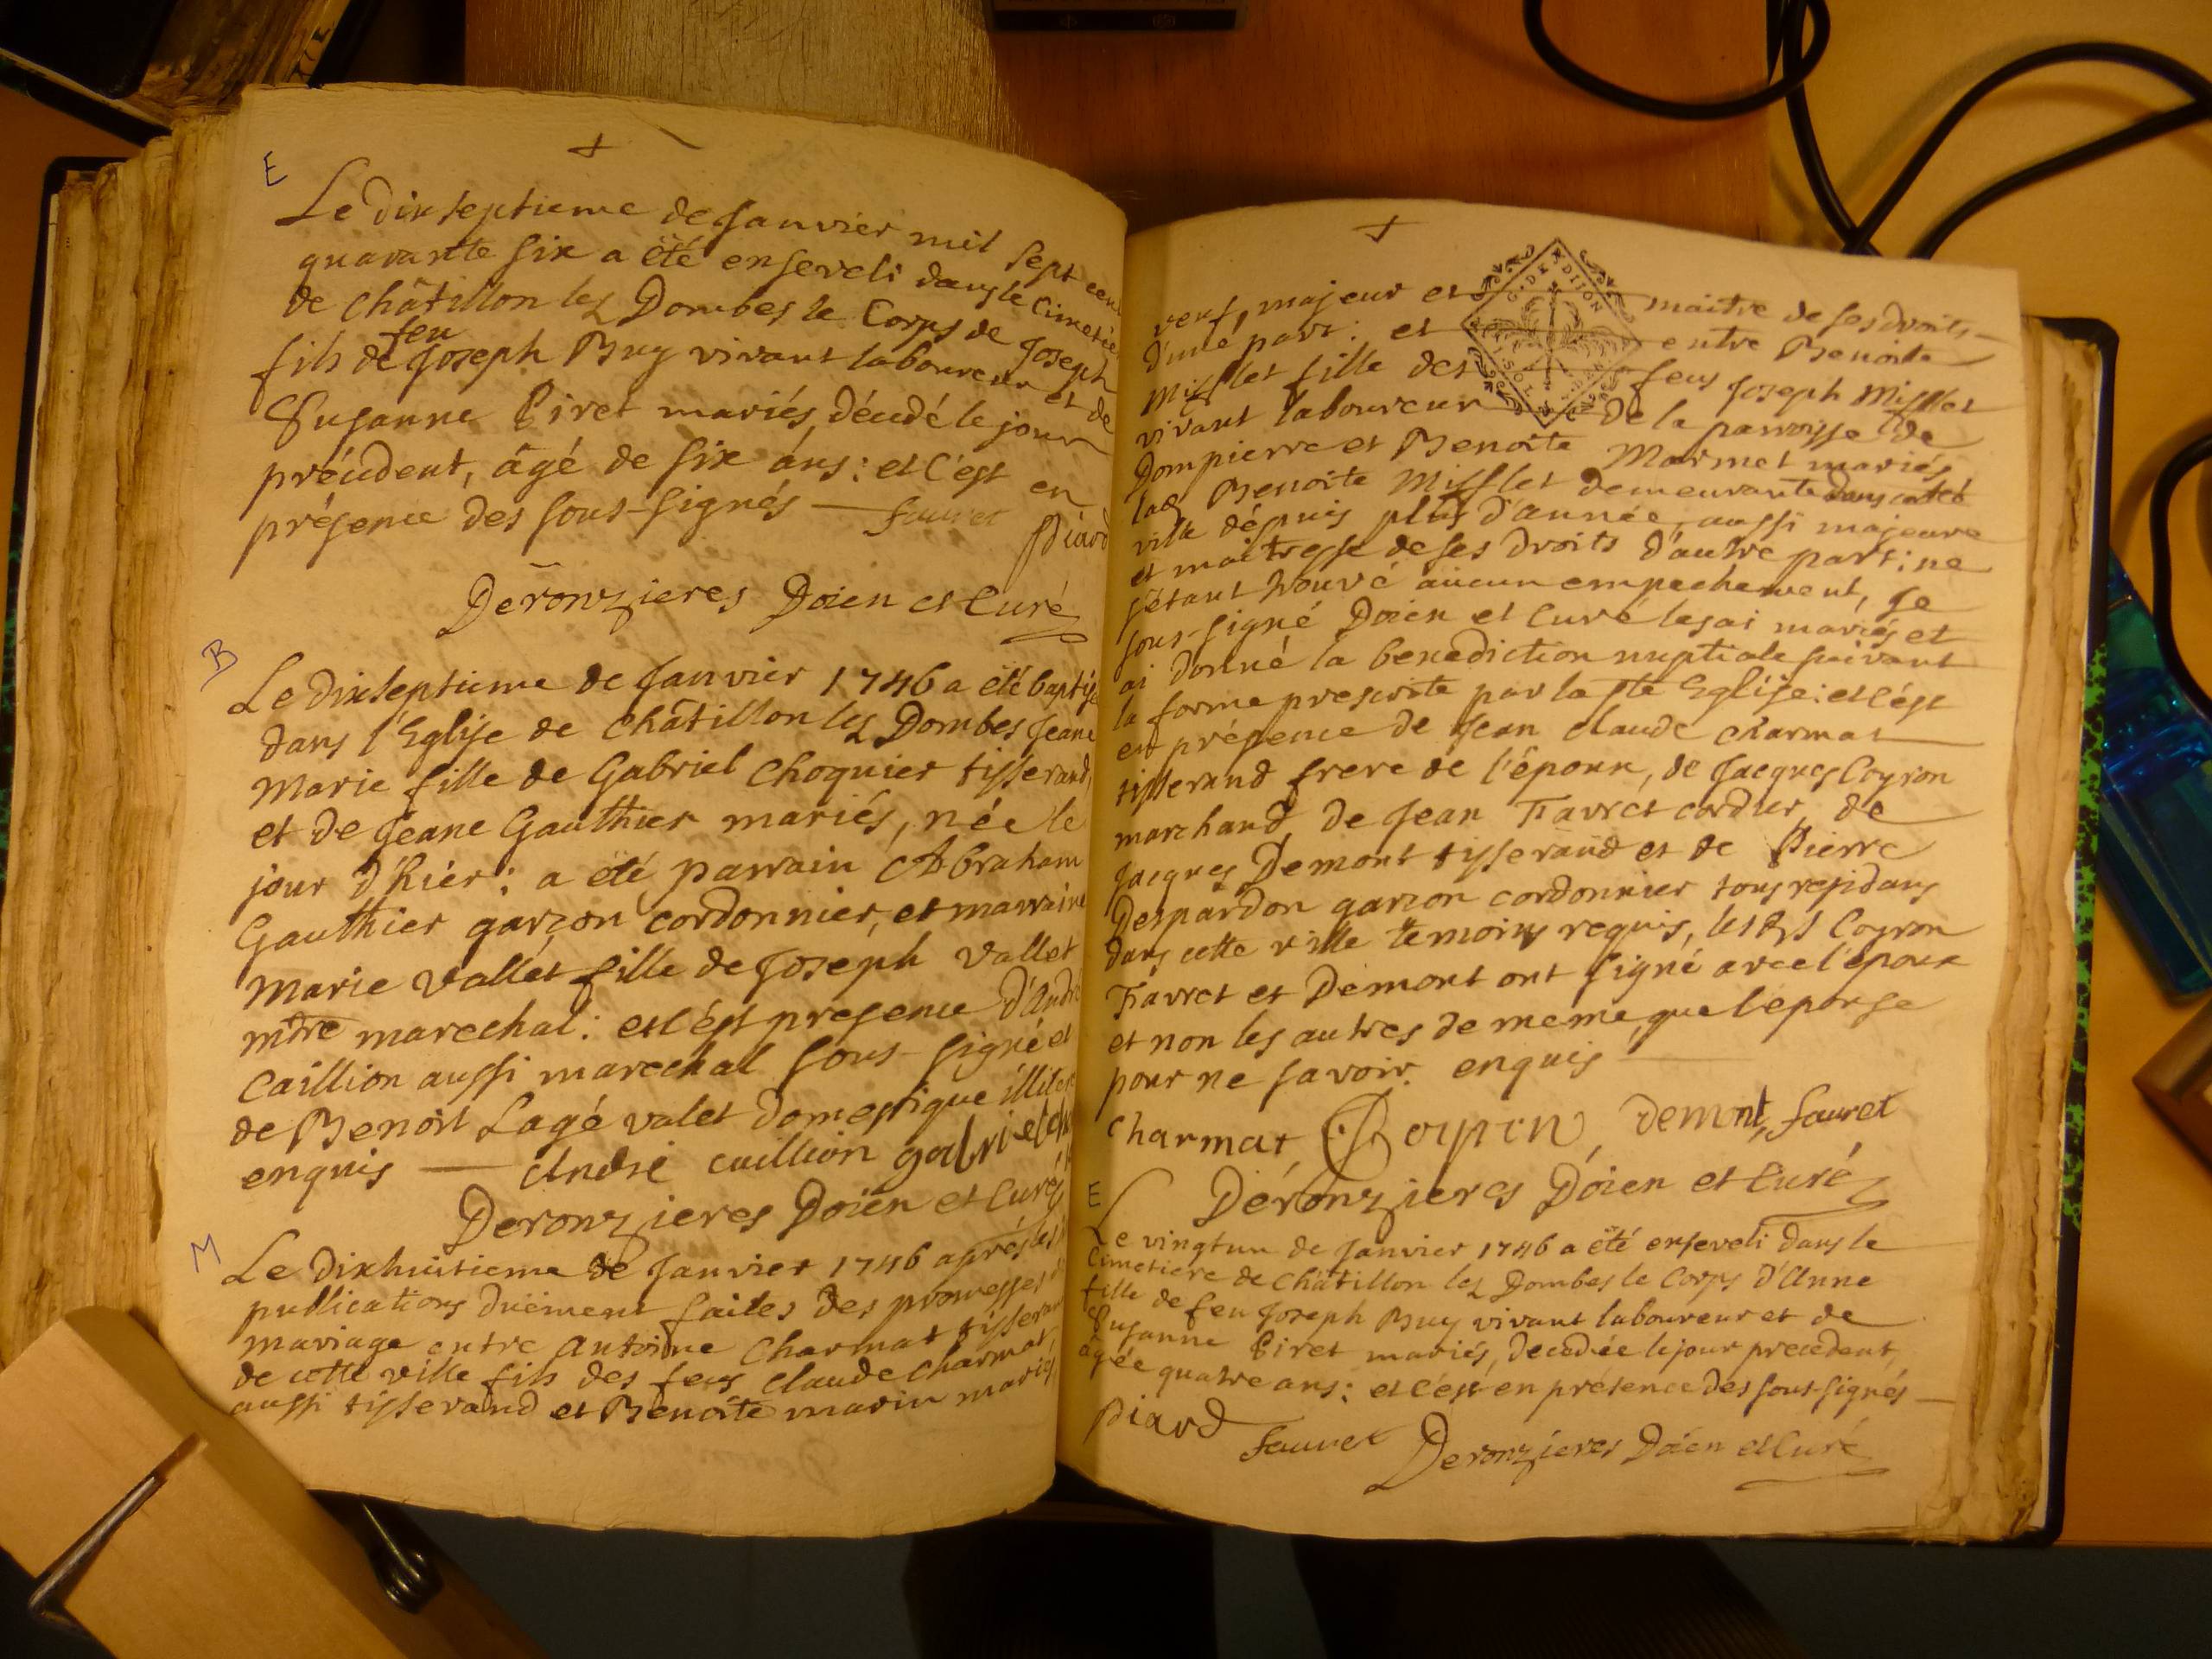 E
Le dixseptieme de Janvier mil sept cent
quarante six a été enseveli dans le Cimetière
de Châtillon les Dombes le Corps de Joseph
feu
fils de Joseph Buy vivant laboureur et de
Susanne Piret mariés, décédé le jour
précédent, âgé de six ans : et c'est en
présence des sous-signés — fauret
Piard
Deronzieres Doien et Curé
B
Le dixseptieme de Janvier 1746 a été baptisé
dans l'Eglise de Châtillon les Dombes Jeane
Marie fille de Gabriel Choquier tisserand,
et de Jeane Gauthier mariés, née le
jour d'hier : a été parrain Abraham
Gauthier garzon cordonnier, et marraine
Marie Vallet fille de Joseph Vallet
mtre marechal : et c'est presence d'André
Caillion aussi marechal sous-signé et
de Benoit Lagé valet domestique illitere
enquis — André caillion gabriel
Deronzieres Doien et Curé
M
Le dixhuitieme de Janvier 1746 après les
publications düement faites des promesses de
mariage entre Antoine Charmat tisserand
de cette ville fils des feus Claude Charmat
aussi tisserand et Benoîte marin mariés,
veuf, majeur et maitre de ses droits —
d'une part : et entre Benoite
Mifflet fille des feus Joseph Mifflet
vivant laboureur de la parroisse de
Dompierre et Benoite Marmet mariés
lad Benoite Mifflet demeurante dans cette
ville depuis plus d'année, aussi majeure
et maitresse de ses droits d'autre part : ne
s'étant trouvé aucun empechement, Je
sous-signé Doien et Curé les ai mariés et
ai donné la benediction nuptiale suivant
la forme prescrite par la ste Eglise : et c'est
en présence de Jean Claude Charmat
tisserand frere de l'époux, de Jacques Coyron
marchand, de Jean Favret cordier, de
Jacques Demont tisserand et de Pierre
Despardon garzon cordonnier tous residans
dans cette ville temoins requis, lesds Coyron
Favret et Demont ont signé avec l'époux
et non les autres de meme que l'épouse
pour ne savoir. enquis —
Charmat Demont fauret
Déronzieres Doien et Curé
E
Le vingtun de Janvier 1746 a été enseveli dans le
Cimetiere de Châtillon les Dombes le Corps d'Anne
fille de feu Joseph Buy vivant laboureur et de
Susanne Piret mariés, decedée le jour precedent,
âgée quatre ans : et c'est en présence des sous-signés —
Piard
fauret Deronzieres Doien et Curé
G. DE DIJON